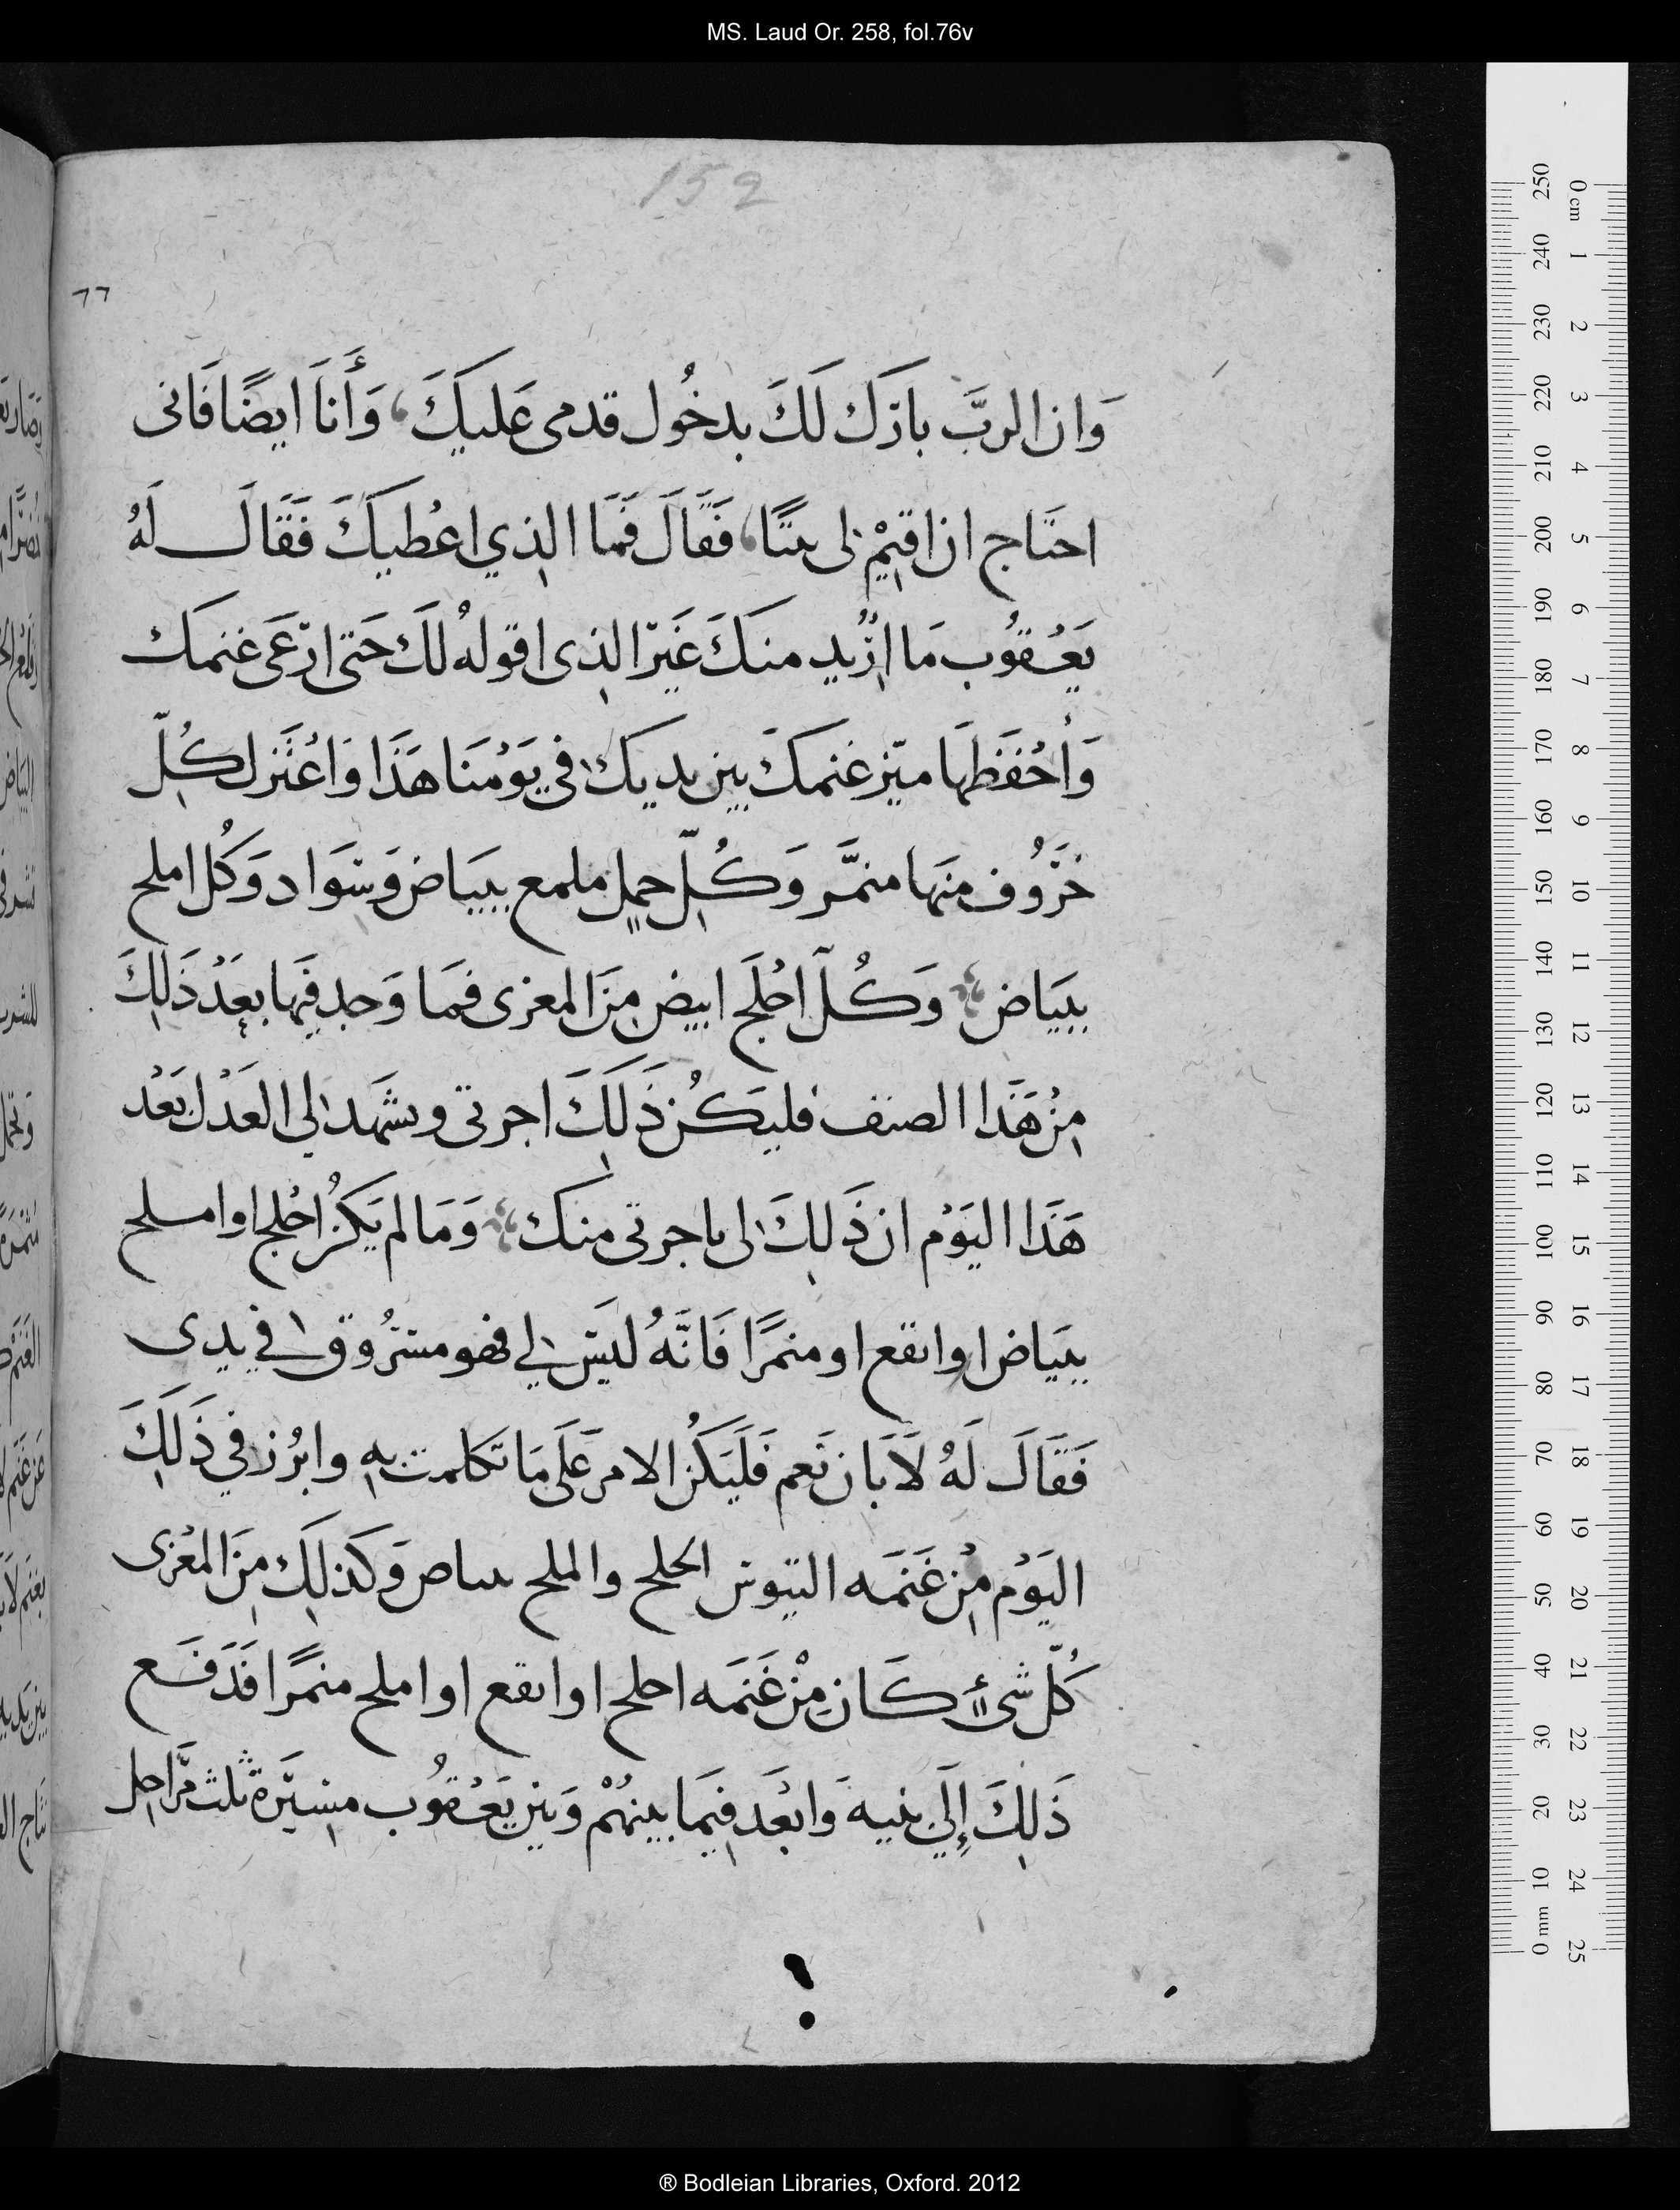 MS. Laud Or. 258, fol.76v
152
٦٦
وَان الربَّ بارَك لَكَ بدخُول قدمى عَليكَ، وَأَنَا ايضًا فَانى
احتَاج ان اقيِمْ لى بيتًا، فَقَالَ فَمَا الذِي اعُطيكَ فَقَالَ لَهُ
يَعُقوُب مَا ارُيد منكَ غَيَر الذِى اقولهُ لكَ حَتى ارعَى غنمك
وَأحُفَظهَا ميّز غنمكَ بين يديكَ في يَوُمنَا هَذَا وَاعُتَزل كُلّ
خَرُوف منهَا منمَّر وَكُلِّ حملٍ ملمع ببيَاض وَسَوَاد وَكُل املح
ببيَاض وَكُلّ احُلَج ابيض مِنَ المعزى فمَا وَجد فيهَا بعِدَ ذَلِكَ
مِنُ هَذَا الصنف فليَكُن ذَلِكَ اجرتى ويشهَد لي العَدُل بَعَدُ
هَذَا اليَوُم ان ذَلِكَ لى باجرتى منك وَمَا لم يَكنُ احُلج او املح
ببيَاض او ابقع او منمرًا فَانَّهُ ليَسَ لي فهو مسَرُوق في يدى
فَقَالَ لَهُ لَابَان نَعم فَليَكُن الامر عَلَى مَا تكلمت بهِ وابرُز في ذَلِكَ
اليَوُم مِنُ غَنمَه التيوس الحلح والملح بياض وَكذلِكَ مِنَ المعُزى
كُلّ شىءٍ كَان مِنُ غَنَمَه احلح او ابقع او املح منمرًا فَدَفَع
ذَلِكَ إِلَي بنيه وَابعَدَ فيِمَا بينهُمْ وَبين يَعُقوُب مسِيَرة ثلث مَرَاحِل
® Bodleian Libraries, Oxford. 2012